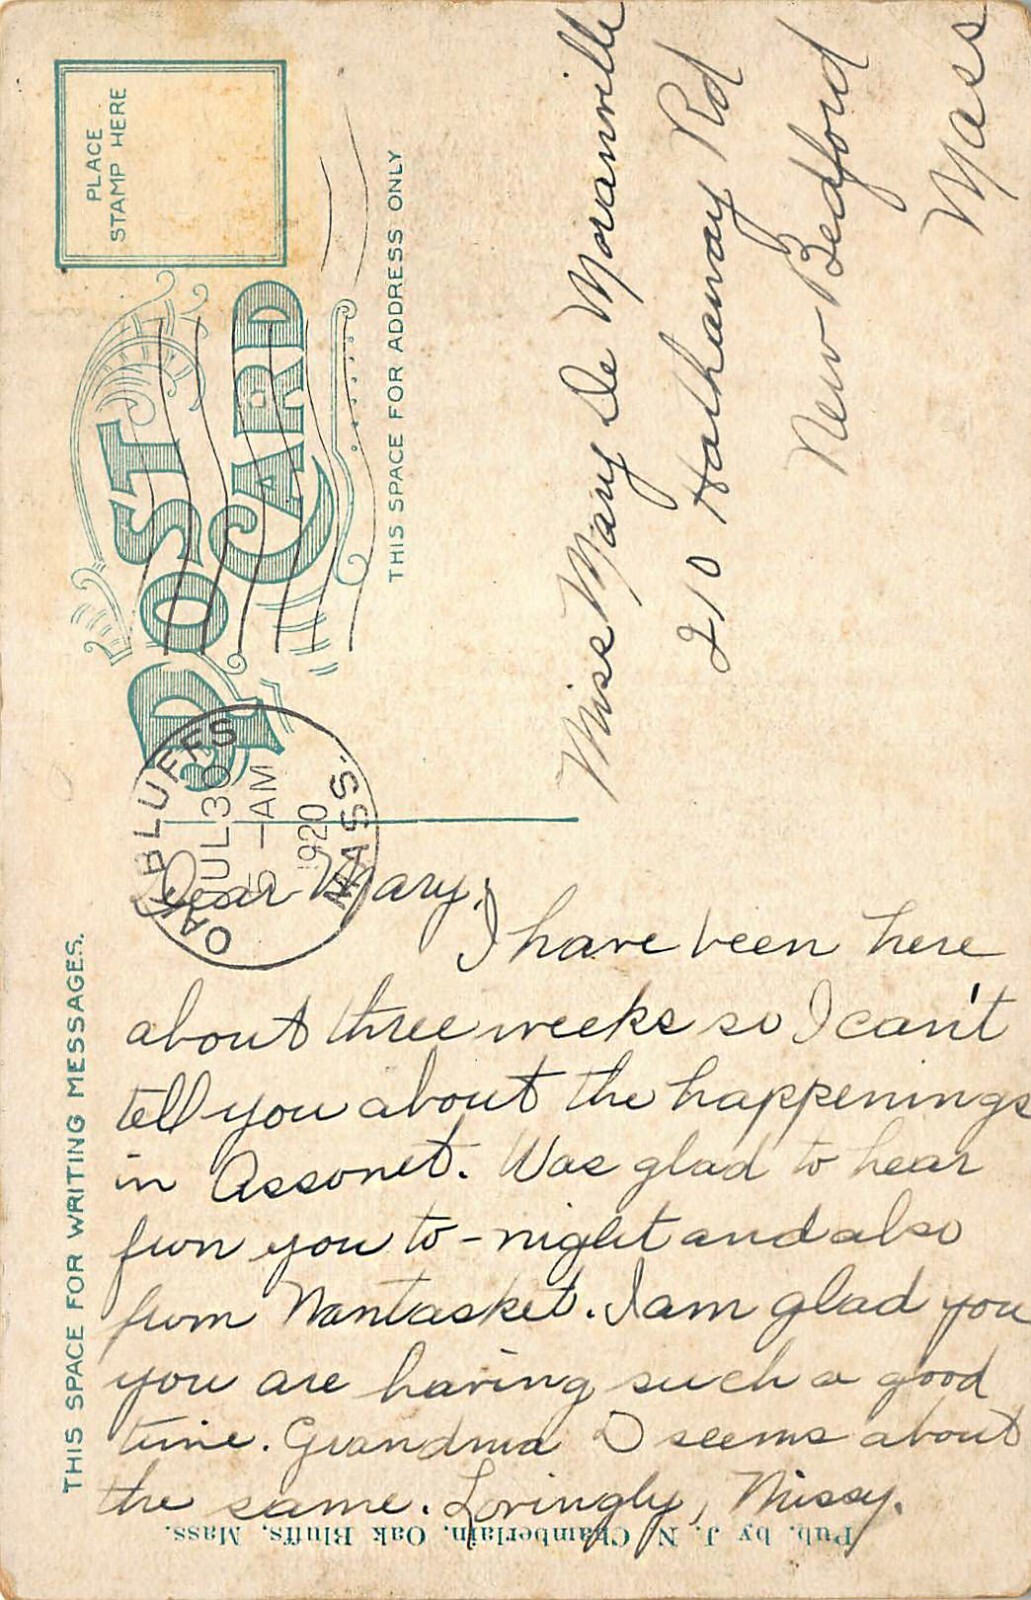 PLACE
STAMP HERE
POST
CARD
THIS SPACE FOR ADDRESS ONLY
OAK BLUFFS
JUL 30
5-AM
1920
MASS.
Miss Mary De Moranville
210 Hathaway Rd
New Bedford
Mass
THIS SPACE FOR WRITING MESSAGES.
Dear Mary;
I have been here
about three weeks so I can't
tell you about the happenings
in Assonet. Was glad to hear
from you to-night and also
from Nantasket. I am glad you
you are having such a good
time. Grandma D seems about
the same. Lovingly, Missy.
Pub. by J. N. Chamberlain, Oak Bluffs, Mass.